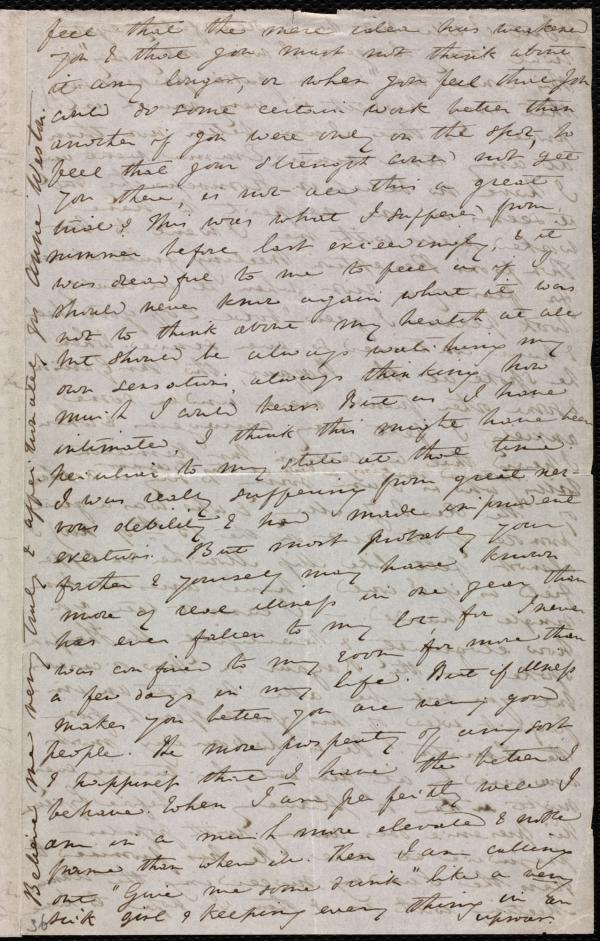 feel that the mere idea has weakened
you & that you must not think about
it any longer, or when you feel that you
could do some certain work better than
another if you were only on the spot, to
feel that your strength could not get
you there, is not all this a great
trial? This was what I suffered from
summer before last exceedingly, & it
was dreadful to me to feel as if I
should never know again what it was
not to think about my health at all
but should be always watching my
own sensations, always thinking how
much I could bear. But as I have
intimated, I think this might have been
peculiar to my state at that time
I was really suffering from great ner-
vous debility & had made imprudent
exertions. But most probably your
father & yourself may have known
more of real illness in one year than
has ever fallen to my lot, for I never
was confined to my room for more than
a few days in my life. But if illness
makes you better you are very good
people. The more prosperity of any sort
& happiness that I have the better I
behave. When I am perfectly well I
am in a much more elevated & noble
frame than when ill. Then I am calling
out "Give me some drink" like a very
sick girl & keeping every thing in an
uproar.
Believe me very truly & affectionately yrs Anne Weston.
36